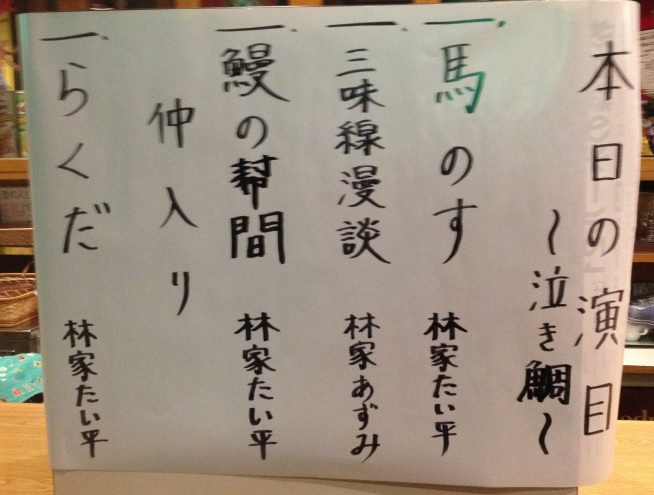 本日の演目
~泣き鯛~
一、馬のす 林家たい平
一、三味線漫談 林家あずみ
一、鰻の幇間 林家たい平
仲入り
一、らくだ 林家たい平